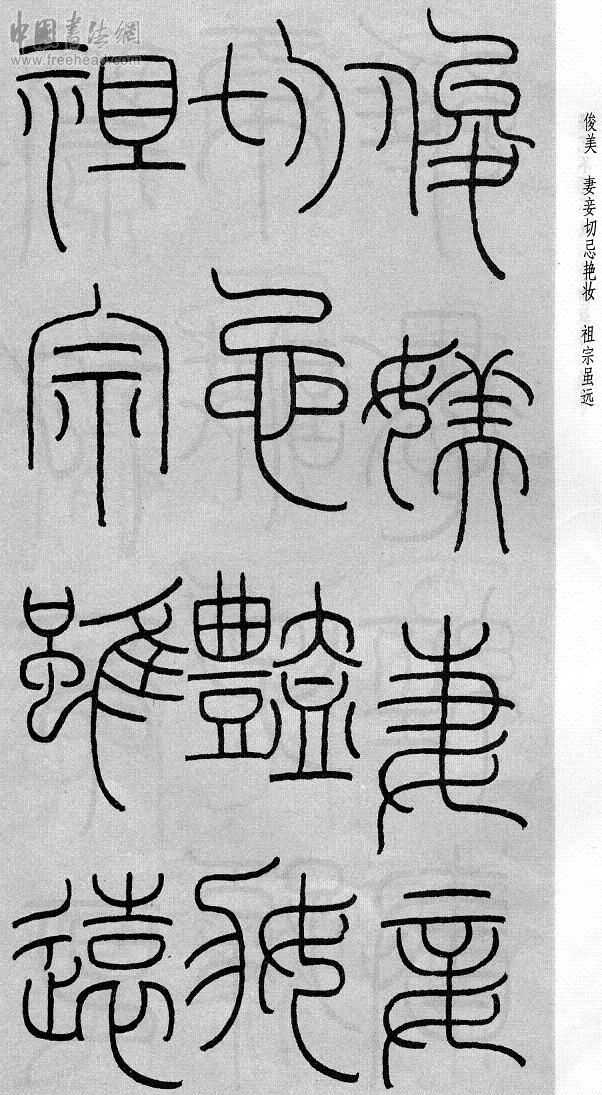 中国书法網
www.freehead.com
俊美 妻妾切忌艳妆 祖宗虽远
俊媄妻妾
切忌豔妝
祖宗雖遠